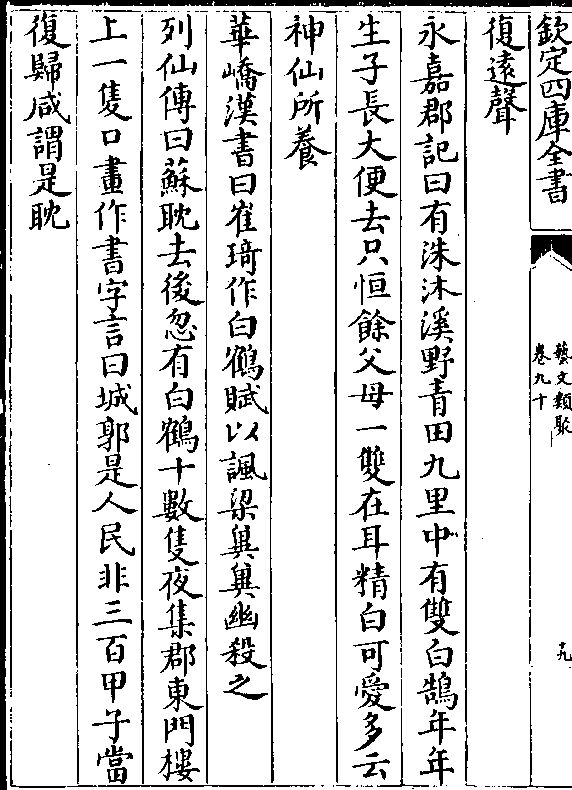 欽定四庫全書
藝文類聚
卷九十
十九
復遠聲
永嘉郡記曰有洙沐溪野青田九里中有雙白鵠年年
生子長大便去只恒餘父母一雙在耳精白可愛多云
神仙所養
華嶠漢書曰崔琦作白鶴賦以諷梁兾兾幽殺之
列仙傳曰蘇耽去後忽有白鶴十數隻夜集郡東門樓
上一隻口畫作書字言曰城郭是人民非三百甲子當
復歸咸謂是耽